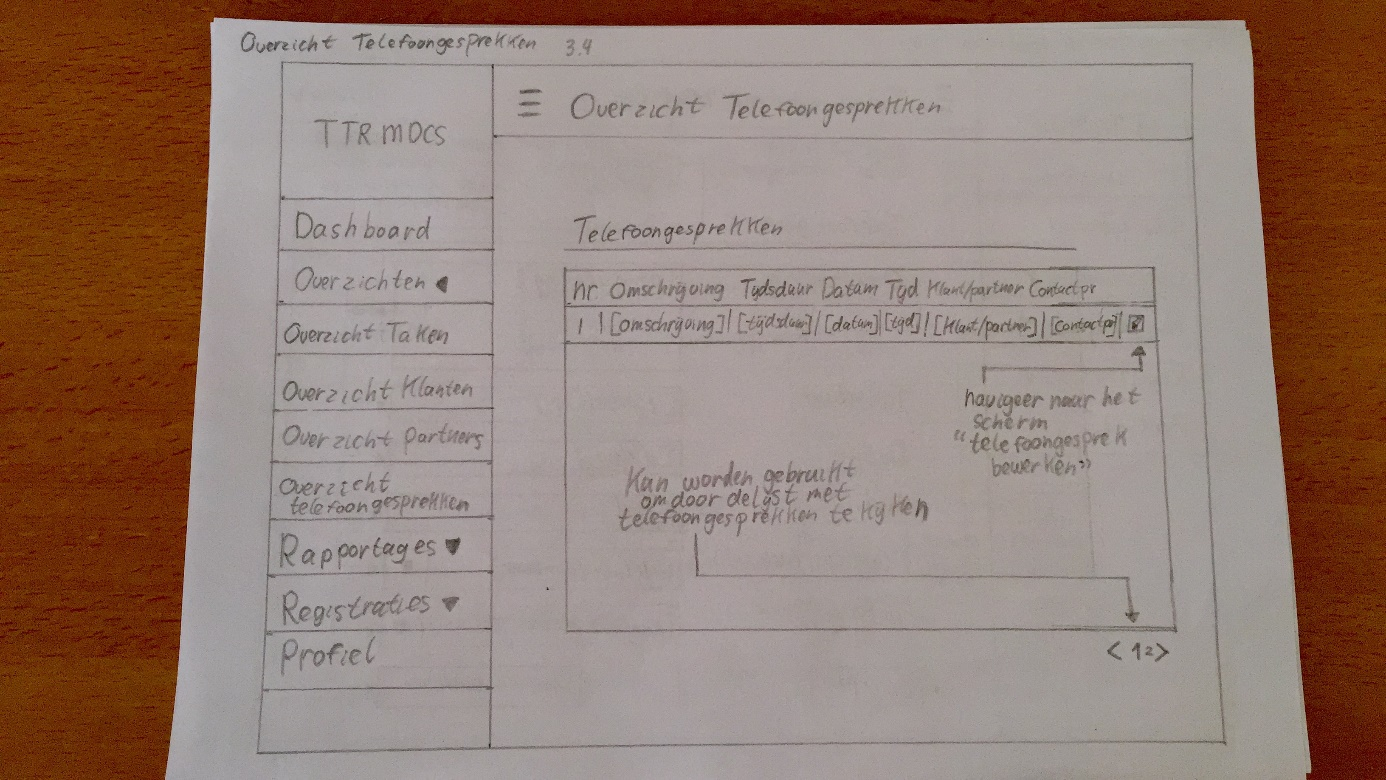 Overzicht Telefoongesprekken 3.4
TTRMDCS
Overzicht Telefoongesprekken
Dashboard
Overzichten
Overzicht Taken
Overzicht Klanten
Overzicht partners
Overzicht
telefoongesprekken
Rapportages
Registraties
Profiel
Telefoongesprekken
nr Omschrijving Tijdsduur Datum Tijd Klant/partner Contactpr
1 | [omschrijving] | [tijdsduur] | [datum] | [tijd] | [Klant/partner] | [contactpr] |
navigeer naar het
scherm
"telefoongesprek
bewerken"
Kan worden gebruikt
om door de lijst met
telefoongesprekken te kijken
< 1 2 >